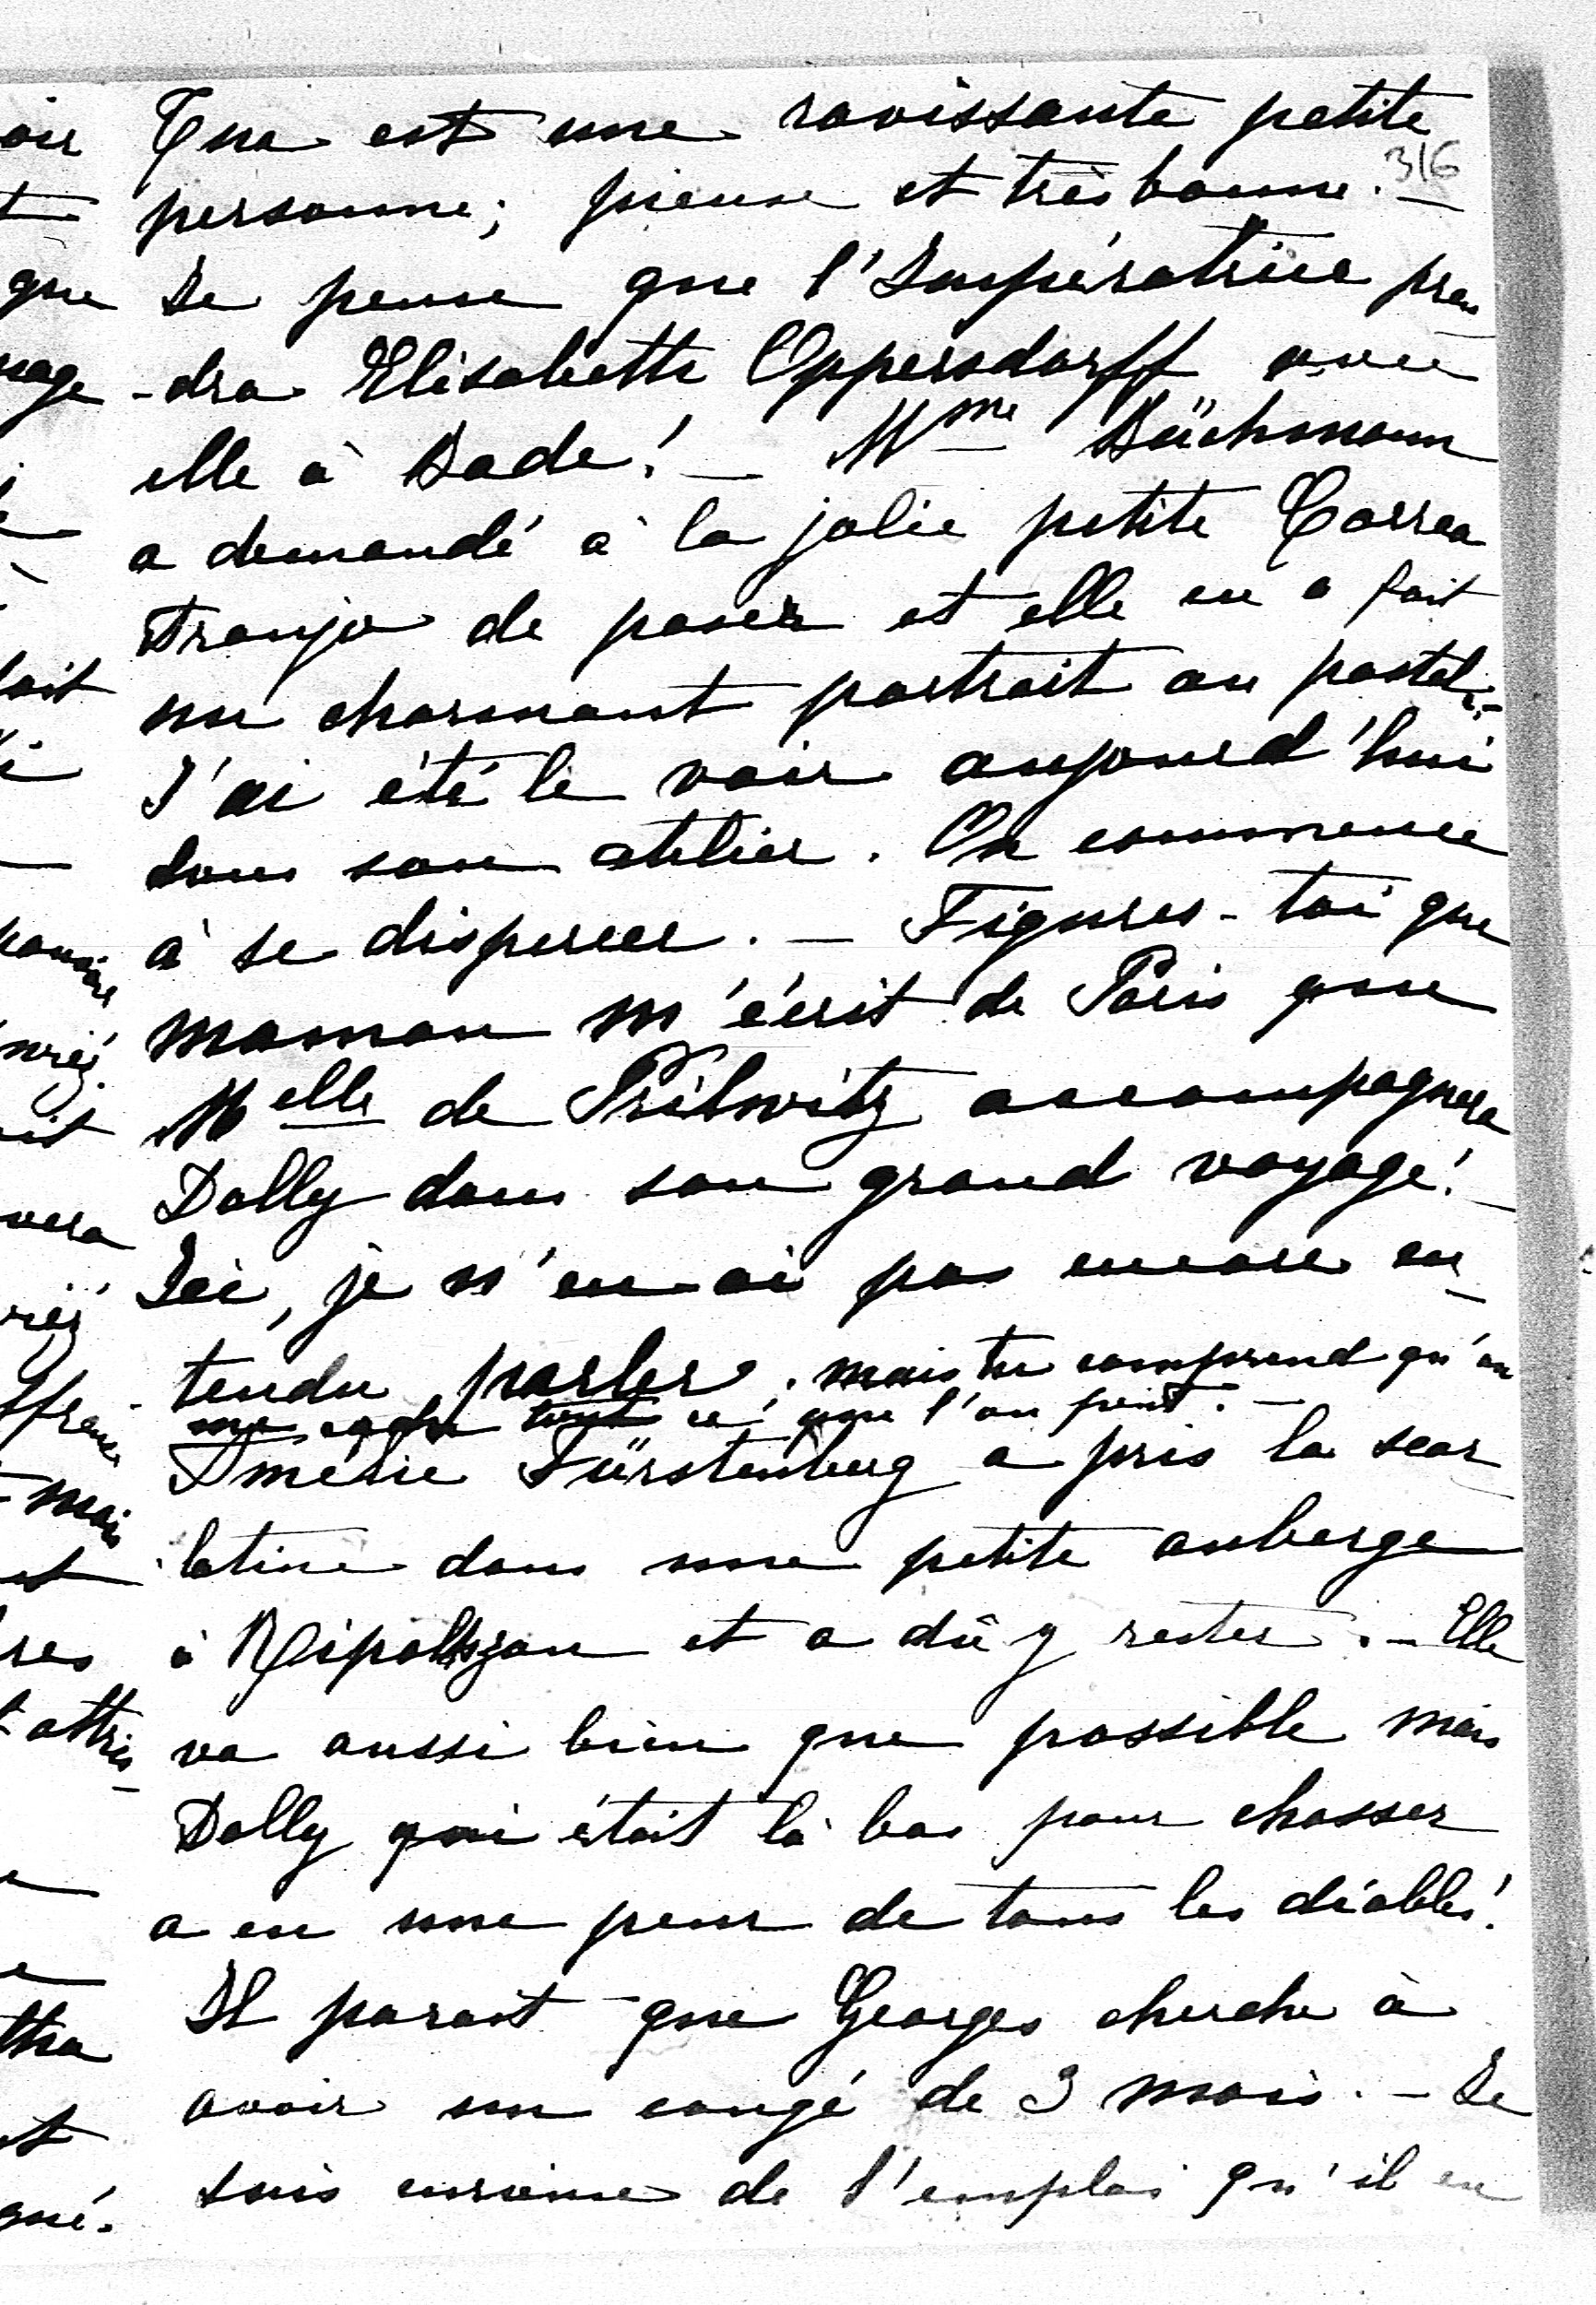 316
Ena est une ravissante petite
personne; pieuse et très bonne. –
Je pense que l'Impératrice pren
-dra Elisabeth Oppersdorff avec
elle à Bade! – Mme
a demandé à la jolie petite Correa
de poser et elle en a fait
un charmant portrait au pastel. –
J'ai été le voir aujourd'hui
dans son atelier. On commence
à se disperser. – Figures-toi que
maman m'écrit de Paris que
Melle de Prilwitz accompagnera
Dolly dans son grand voyage! –
Ici, je n'en ai pas encore en-
tendu parler. mais tu comprend qu'on
me cache tout ce que l'on peut. –
Amélie Fürstenberg a pris la scar
latine dans une petite auberge
à et a dû y rester. – Elle
va aussi bien que possible mais
Dolly qui était là bas pour chasser
a eu une peur de tous les diables!
Il parait que Georges cherche à
avoir un congé de 3 mois. – Je
suis curieuse de l'emploi qu'il en